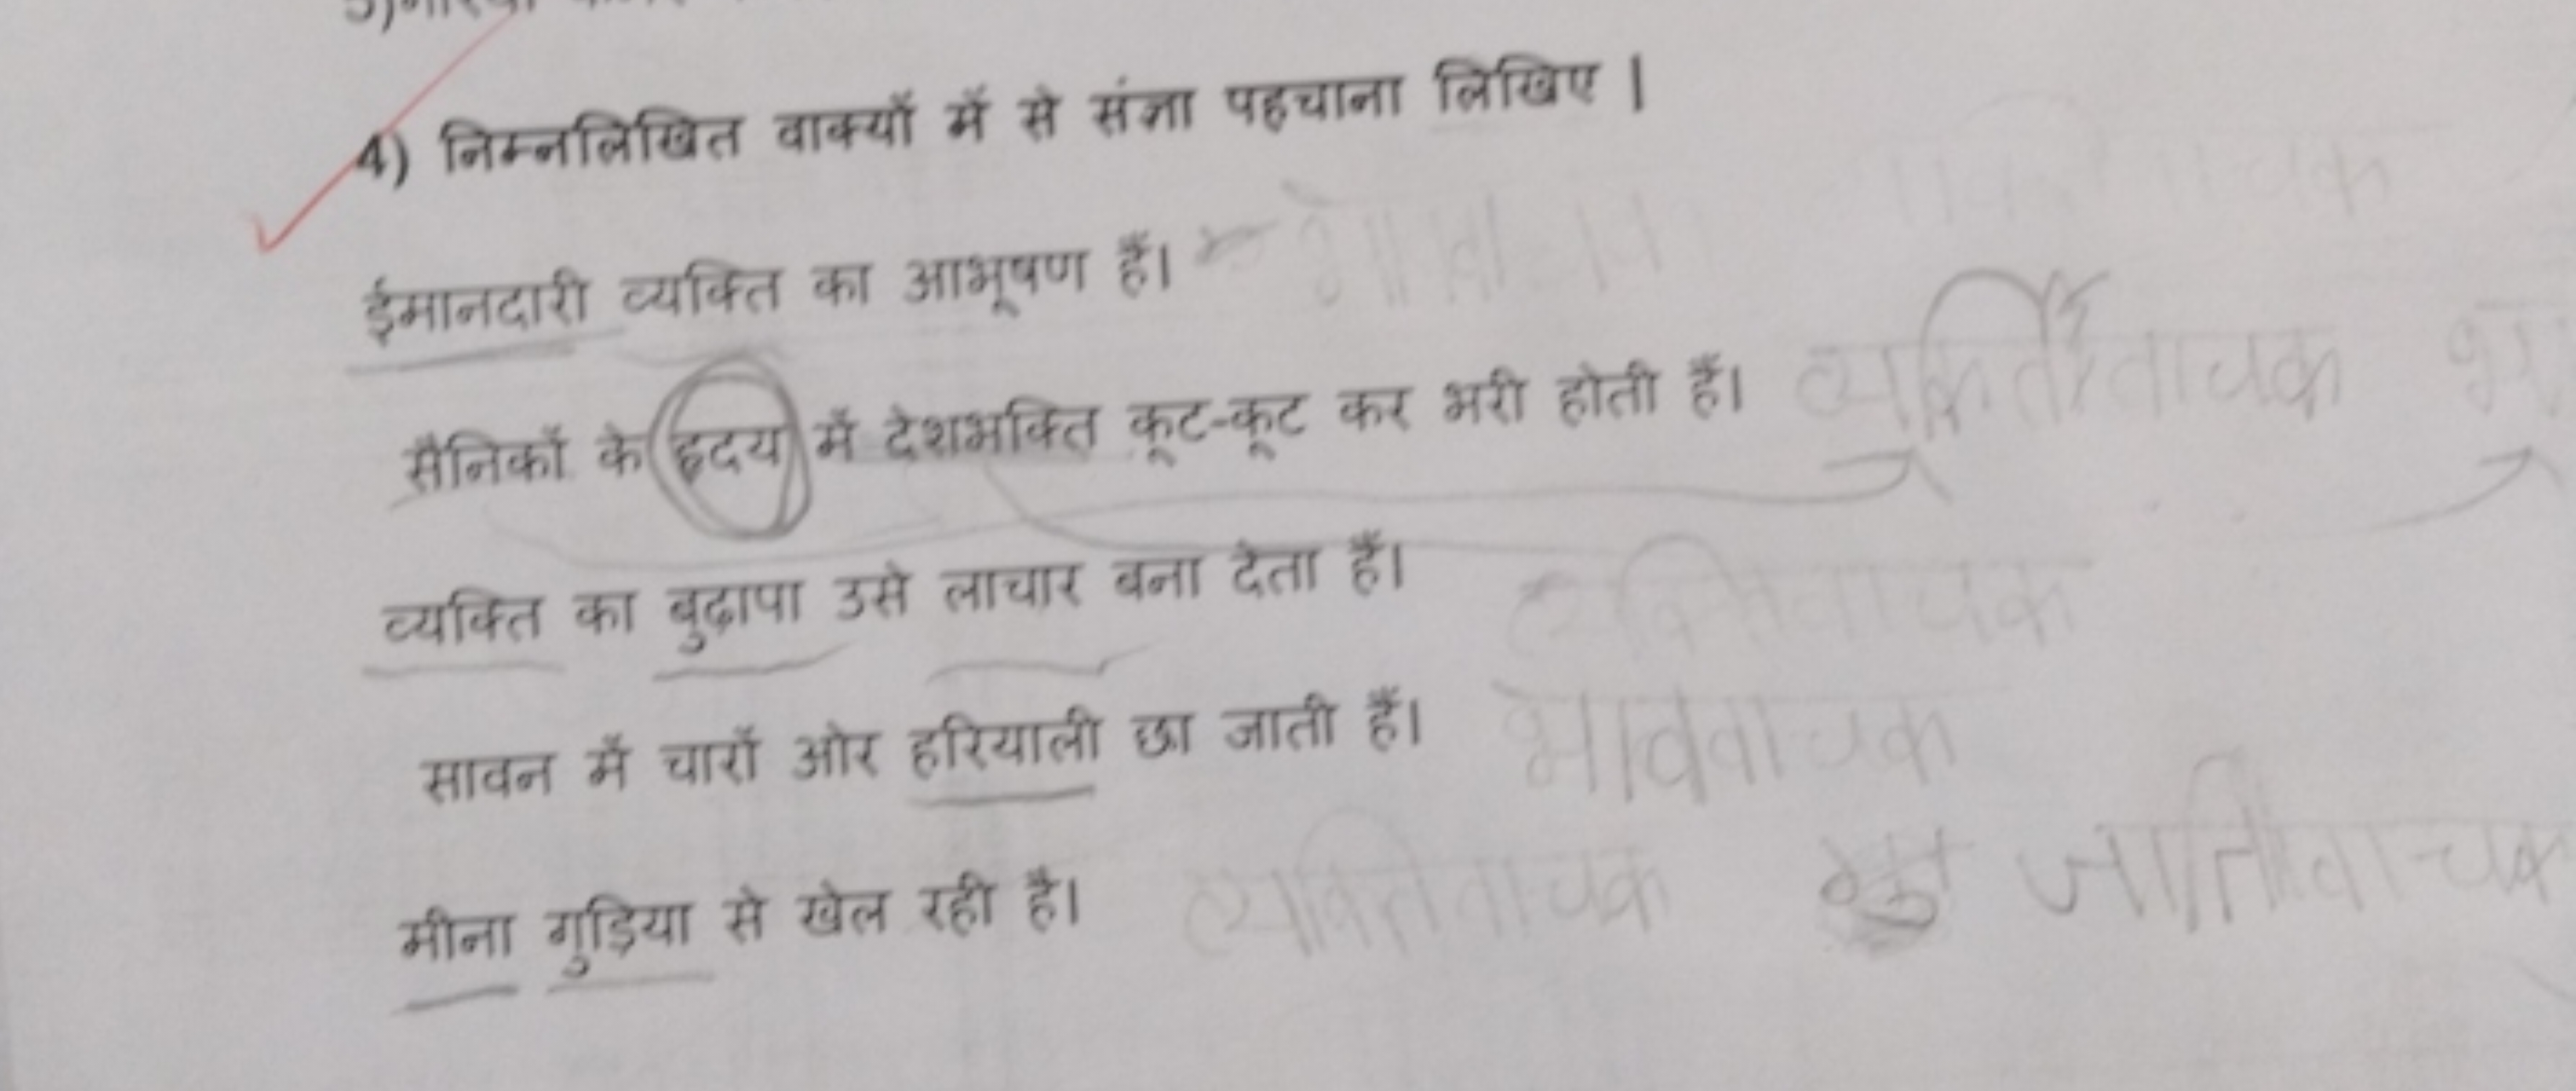 4) निम्नलिखित वाक्यों में से संज्ञा पहचाना लिखिए |
ईमानदारी व्यक्ति का आभूषण हैं।
सैनिकों के हृदय में देशभक्ति कूट-कूट कर भरी होती हैं। व्यक्तिवाचक
व्यक्ति का बुढ़ापा उसे लाचार बना देता हैं। व्यक्तिवाचक
सावन में चारों ओर हरियाली छा जाती हैं। भाववाचक
मीना गुड़िया से खेल रही है। व्यक्तिवाचक जातिवाचक